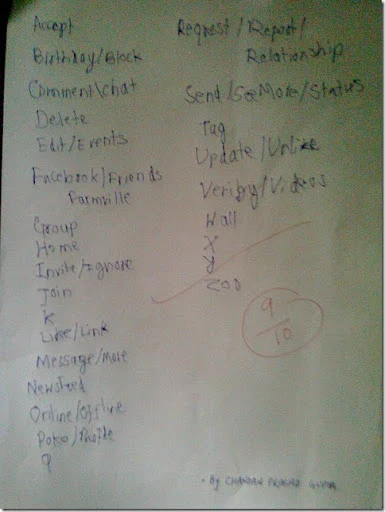 Accept
Birthday/Block
Comment\chat
Delete
Edit/Events
Facebook/Friends
Farmville
Group
Home
Invite/Ignore
Join
K
Like/Link
Message/More
Newsfeed
Online/Offline
Poke/Profile
q
Request/Report/
Relationship
Send/SeeMore/Status
Tag
Update/Unlike
Verify/Videos
Wall
X
y
ZOO
9
10
- By CHANDAN PRASAD GUPTA